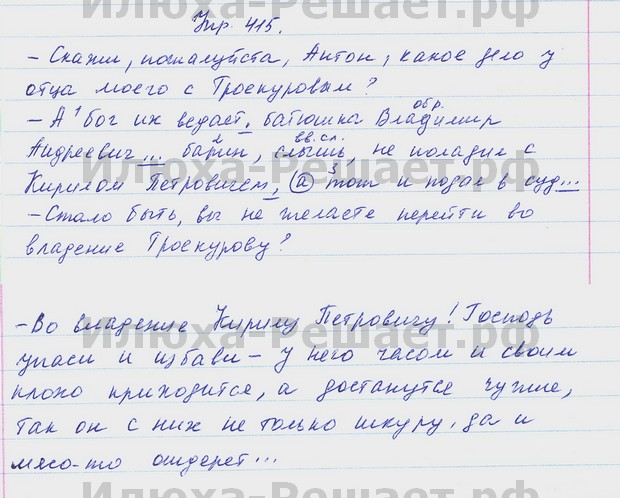 Илюха-Решает.рф
Упр. 415.
- Скажи, пожалуйста, Антон, какое дело у
отца моего с Троекуровым?
- А ¹бог их ведает, батюшка Владимир
обр.
Андреевич... ²барин, слышь, не поладил с
вв. сл.
Кирилом Петровичем, (а) ³тот и подал в суд...
- Стало быть, вы не желаете перейти во
владение Троекурову?
Илюха-Решает.рф
- Во владение Кирилу Петровичу! Господь
упаси и избави - у него часом и своим
плохо приходится, а достанутся чужие,
так он с них не только шкуру, да и
мясо-то отдерет...
Илюха-Решает.рф